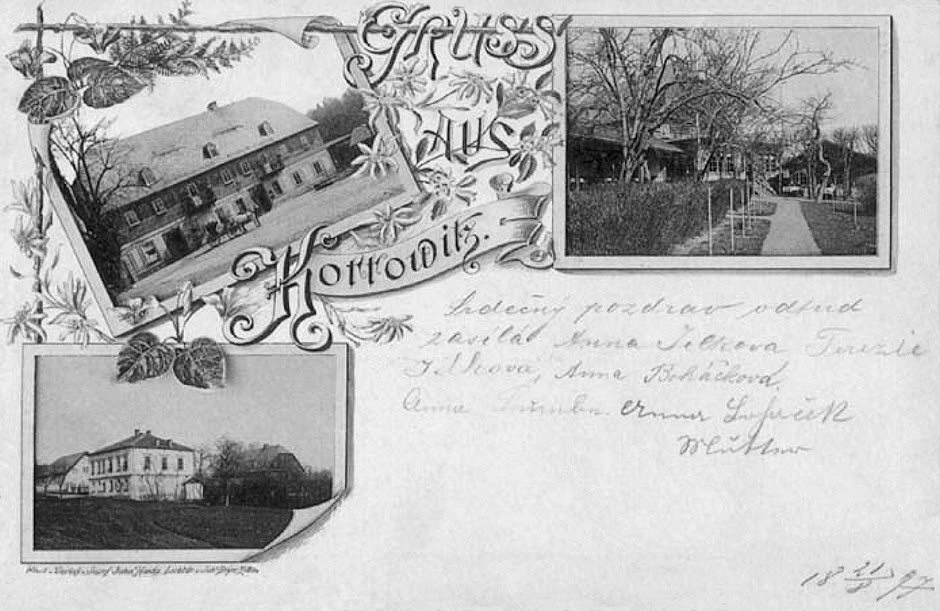 GRUSS
AUS
Horrowitz.
Srdečný pozdrav odtud
zasílá Anna Jelkova, Terezie
Jelková, Anna Boháčková,
Anna Anna
Mutter
18 21/8 97